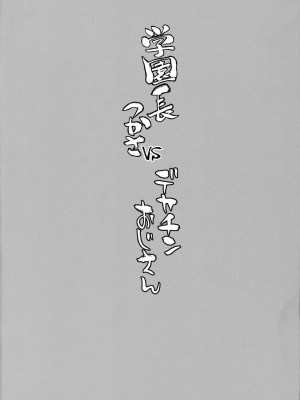 学園長
つかさ
vs
デカチン
おじさん